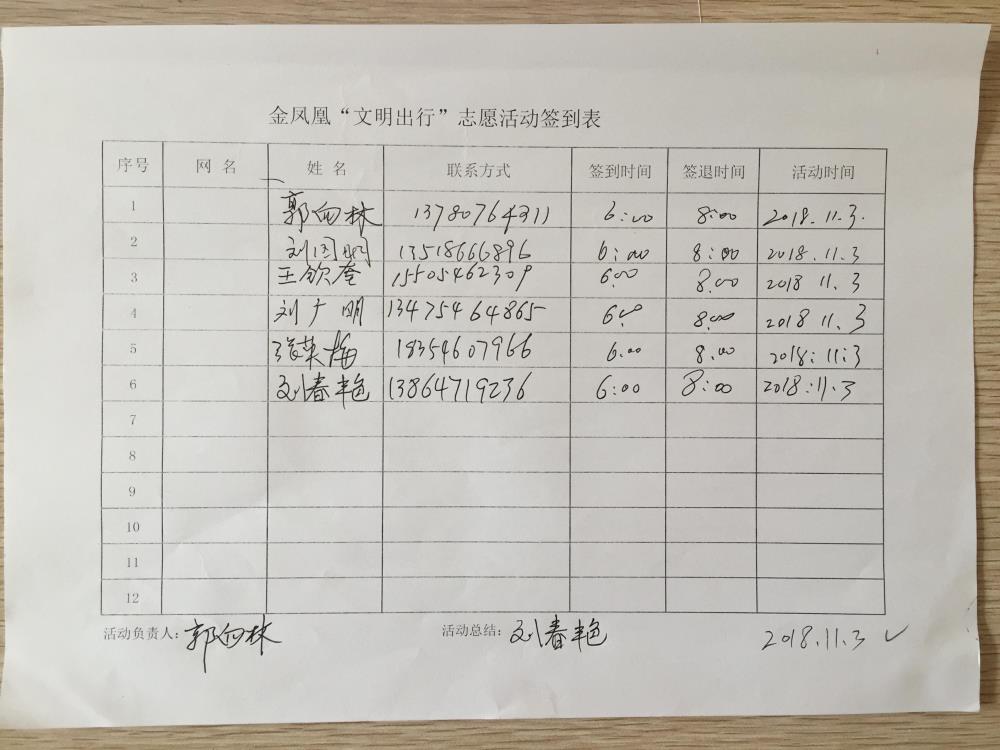 金凤凰“文明出行”志愿活动签到表
序号 网 名 姓 名 联系方式 签到时间 签退时间 活动时间
1 郭向林 13780764211 6:00 8:00 2018.11.3.
2 刘国明 13518666896 6:00 8:00 2018.11.3
3 王钦奎 15505462309 6:00 8:00 2018 11.3
4 刘广明 13475464865 6:00 8:00 2018 11.3
5 张英梅 18354607966 6:00 8:00 2018:11:3
6 刘春艳 13864719236 6:00 8:00 2018:11.3
7
8
9
10
11
12
活动负责人:郭向林 活动总结:刘春艳 2018.11.3 ✓